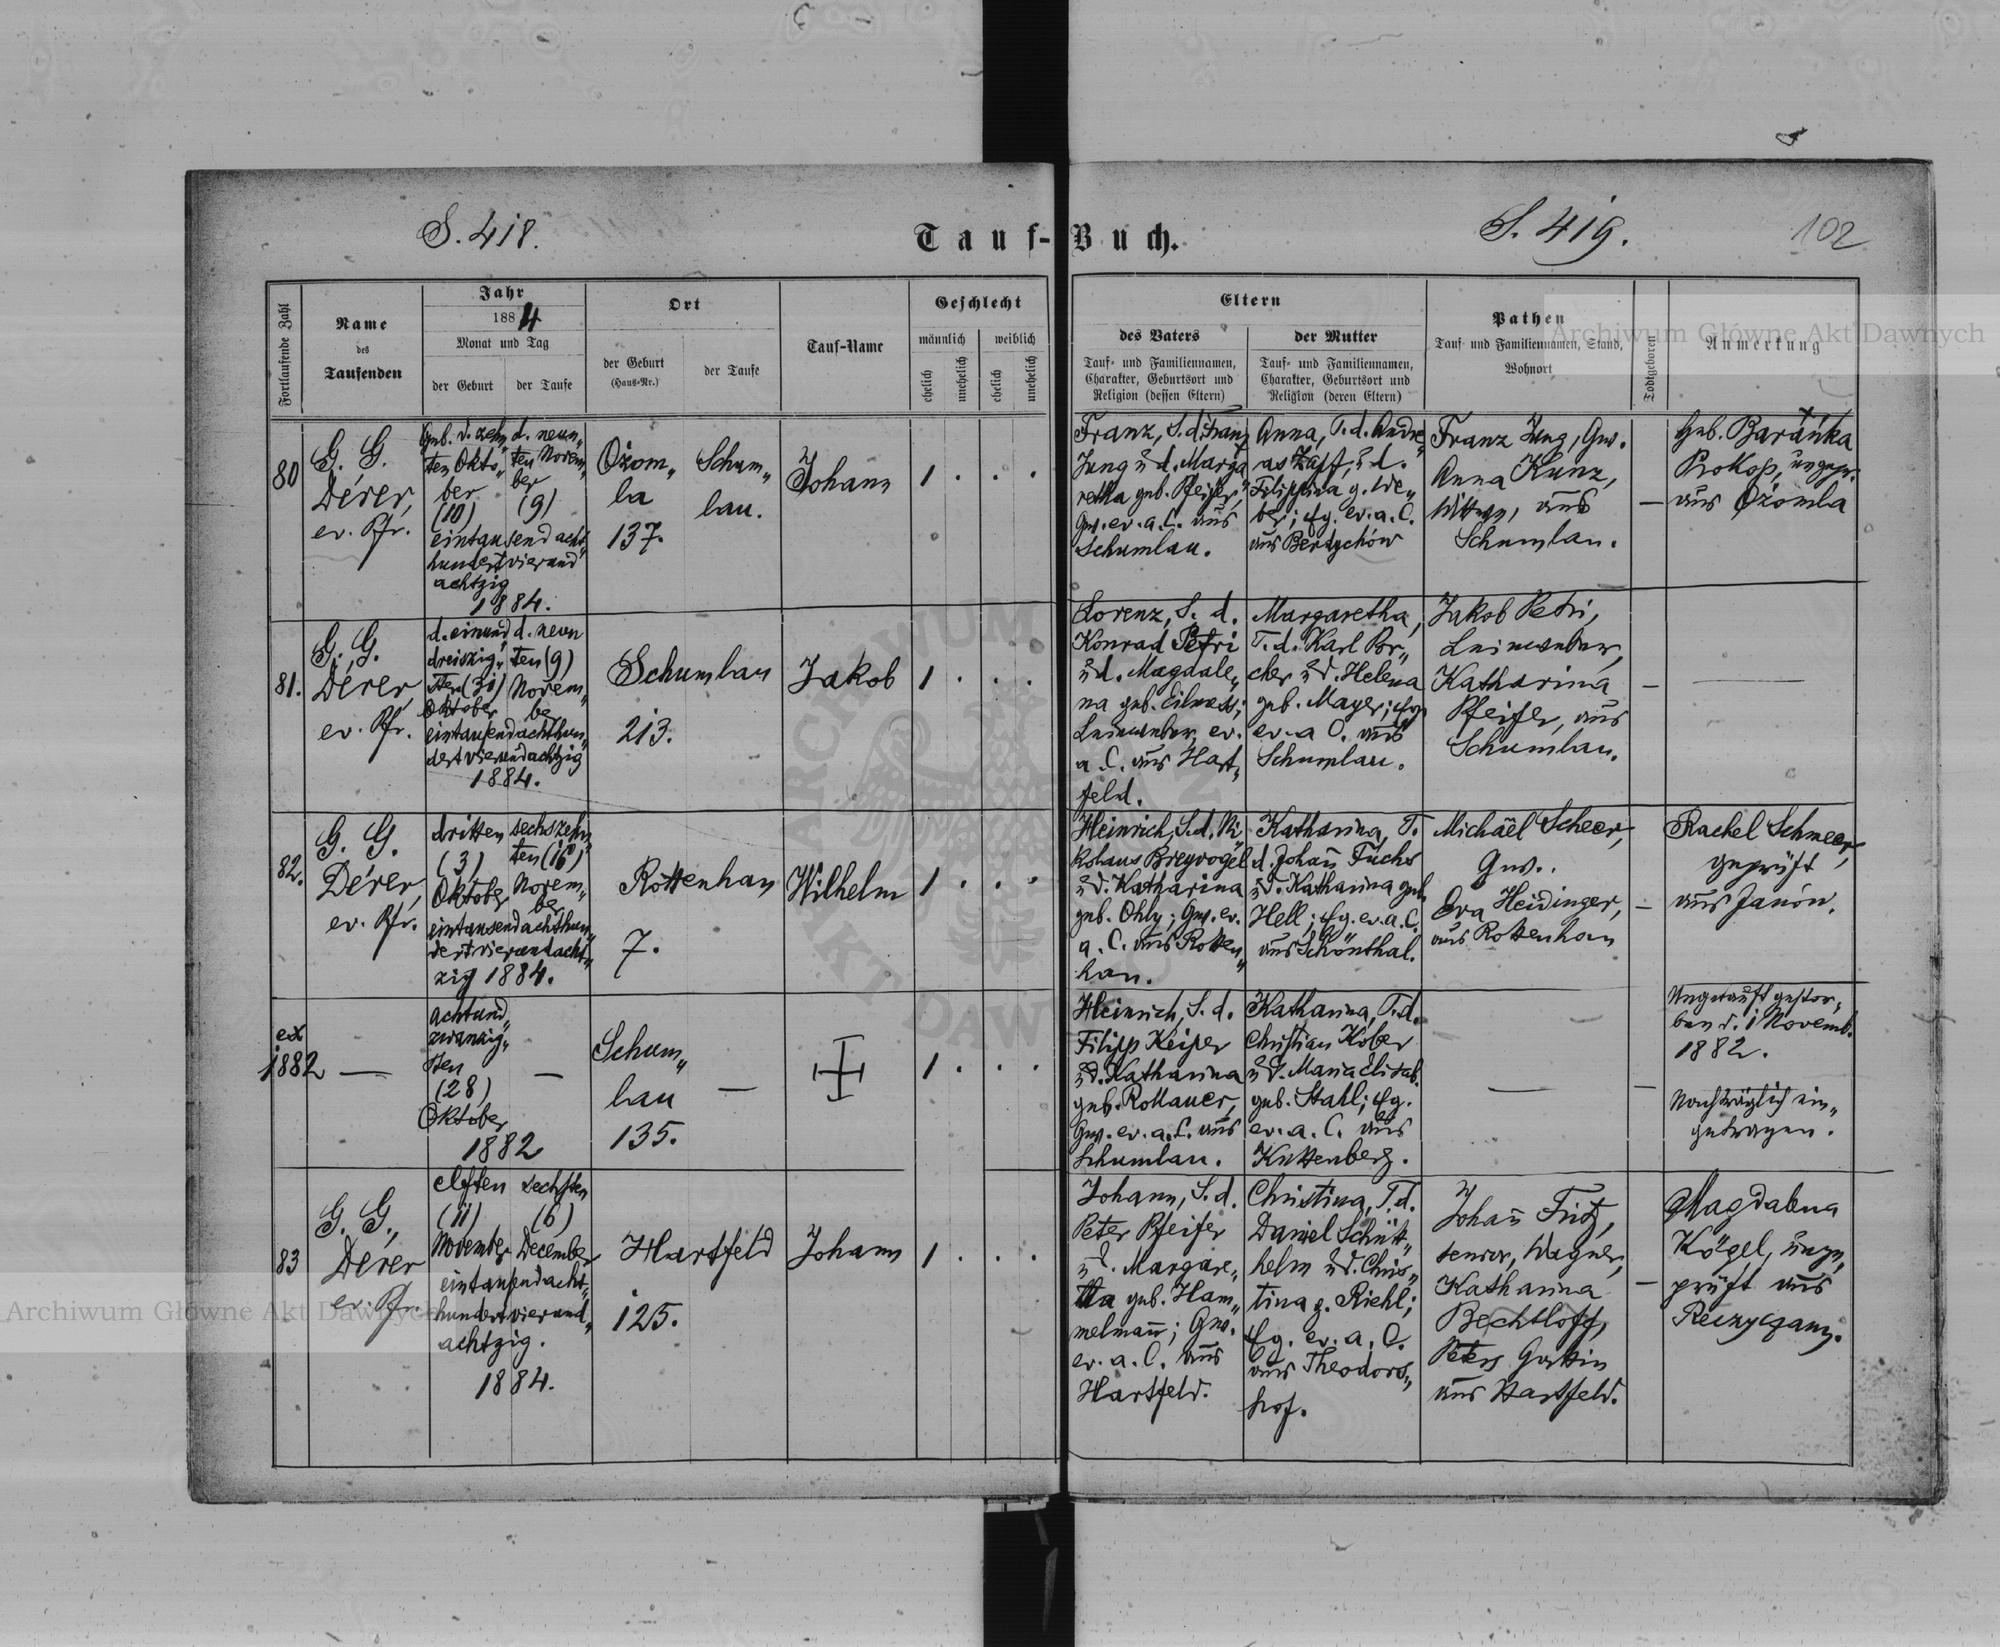 S. 418.
Tauf-Buch.
S. 419.
102
Fortlaufende Zahl
Name
des
Taufenden
Jahr
1884
Monat und Tag
der Geburt
der Taufe
Ort
der Geburt
(Haus-Nr.)
der Taufe
Tauf-Name
Geschlecht
männlich
weiblich
ehelich
unehelich
ehelich
unehelich
Eltern
des Vaters
Tauf- und Familiennamen,
Charakter, Geburtsort und
Religion (dessen Eltern)
der Mutter
Tauf- und Familiennamen,
Charakter, Geburtsort und
Religion (deren Eltern)
Pathen
Tauf- und Familiennamen, Stand,
Wohnort
Todtgeboren
Anmerkung
80
G. G.
Dérer,
ev. Pfr.
Geb. d. zehn„
ten Okto„
ber
(10)
d. neun„
ten Novem„
ber
(9)
eintausend acht„
hundertvierund
achtzig
1884.
Ożom„
la
137.
Schum„
lau.
Johann
1 . . .
Franz, S. d. Franz
Jung u d. Marga
retha geb. Pfeifer,
Gw. ev. a. C. aus
Schumlau.
Anna, T. d. Andre„
as Zapf, u d.
Filippina g. We„
ber; Eg. ev. a. C.
aus Berdychów
Franz Jung, Gw.
Anna Kunz,
Witwe, aus
Schumlau.
—
Heb. Baránka
Prokop, ungepr.
aus Ożomla
81.
G. G.
Dérer,
ev. Pfr.
d. einund„
dreiszig„
sten (31)
Oktober
d. neun
ten (9)
Novem„
ber
eintausendachthun„
dertvierundachtzig
1884.
Schumlau
213.
Jakob
1 . . .
Lorenz, S. d.
Konrad Petri
u d. Magdale„
na geb. Eilmess;
Leinweber, ev.
a. C. aus Hart„
feld.
Margaretha,
T. d. Karl Bor„
cher u d. Helena
geb. Mayer; Eg.
ev. a C. aus
Schumlau.
Jakob Petri,
Leinweber,
Katharina
Pfeifer, aus
Schumlau.
—
82.
G. G.
Dérer,
ev. Pfr.
dritten
(3)
Oktober
sechszehn„
ten (16)
Novem„
ber
eintausendachthun„
dertvierundacht„
zig 1884.
Rottenhan
7.
Wilhelm
1 . . .
Heinrich, S. d. Ni„
kolaus Breyvogel
u d. Katharina
geb. Ohly; Gw. ev.
a. C. aus Rotten„
han.
Katharina, T.
d. Johañ Fuchs
u d. Katharina geb.
Hell; Eg. ev. a. C.
aus Schönthal.
Michael Scheer,
Gw.
Eva Heidinger,
aus Rottenhan
—
Rachel Schmeer,
geprüft
aus Janów.
ex
1882
—
achtund„
zwanzig„
sten
(28)
Oktober
1882
—
Schum„
lau
135.
—
1 . . .
Heinrich, S. d.
Filipp Keiper
u d. Katharina
geb. Rollauer,
Gw. ev. a. C. aus
Schumlau.
Katharina, T. d.
Christian Kober
u d. Maria Elisab.
geb. Stahl; Eg.
ev. a. C. aus
Kuttenberg.
—
—
Ungetauft gestor„
ben d. 1 Novemb.
1882.
Nachträglich ein„
getragen.
83
G. G.,
Dérer
ev. Pfr.
elften
(11)
November
sechsten
(6)
December
eintausendacht„
hundertvierund„
achtzig.
1884.
Hartfeld
125.
Johann
1 . . .
Johann, S. d.
Peter Pfeifer
u d. Margare„
tha geb. Ham„
melmañ; Gw.
ev. a. C. aus
Hartfeld.
Christina, T. d.
Daniel Schütt„
helm u d. Chris„
tina g. Riehl;
Eg. ev. a. C.
aus Theodors„
hof.
Johañ Fritz,
senior, Wagner,
Katharina
Bechtloff,
Peters Gattin
aus Hartfeld.
—
Magdalena
Kögel, unge„
prüft aus
Reczyczany.
Archiwum Główne Akt Dawnych
Archiwum Główne Akt Dawnych